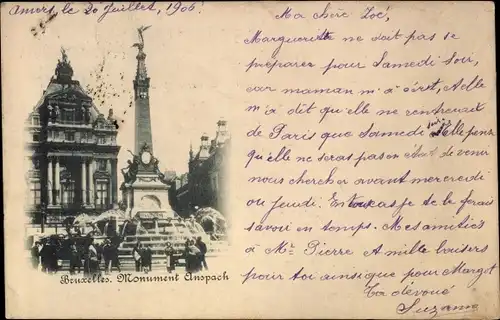 Anvers, le 20 Juillet, 1906
Ma chère Zoé,
Marguerite ne doit pas se
préparer pour Samedi soir,
car maman m'a écrit, Elle
m'a dit qu'elle ne rentrerait
de Paris que Samedi soir
Elle pense
qu'elle ne sera pas en état de venir
nous chercher avant mercredi
ou jeudi. En tout cas je te le ferais
savoir en temps. Mes amitiés
à Mr Pierre A mille baisers
pour toi ainsi que pour Margot
Ta dévoué
Suzanne
Bruxelles. Monument Anspach